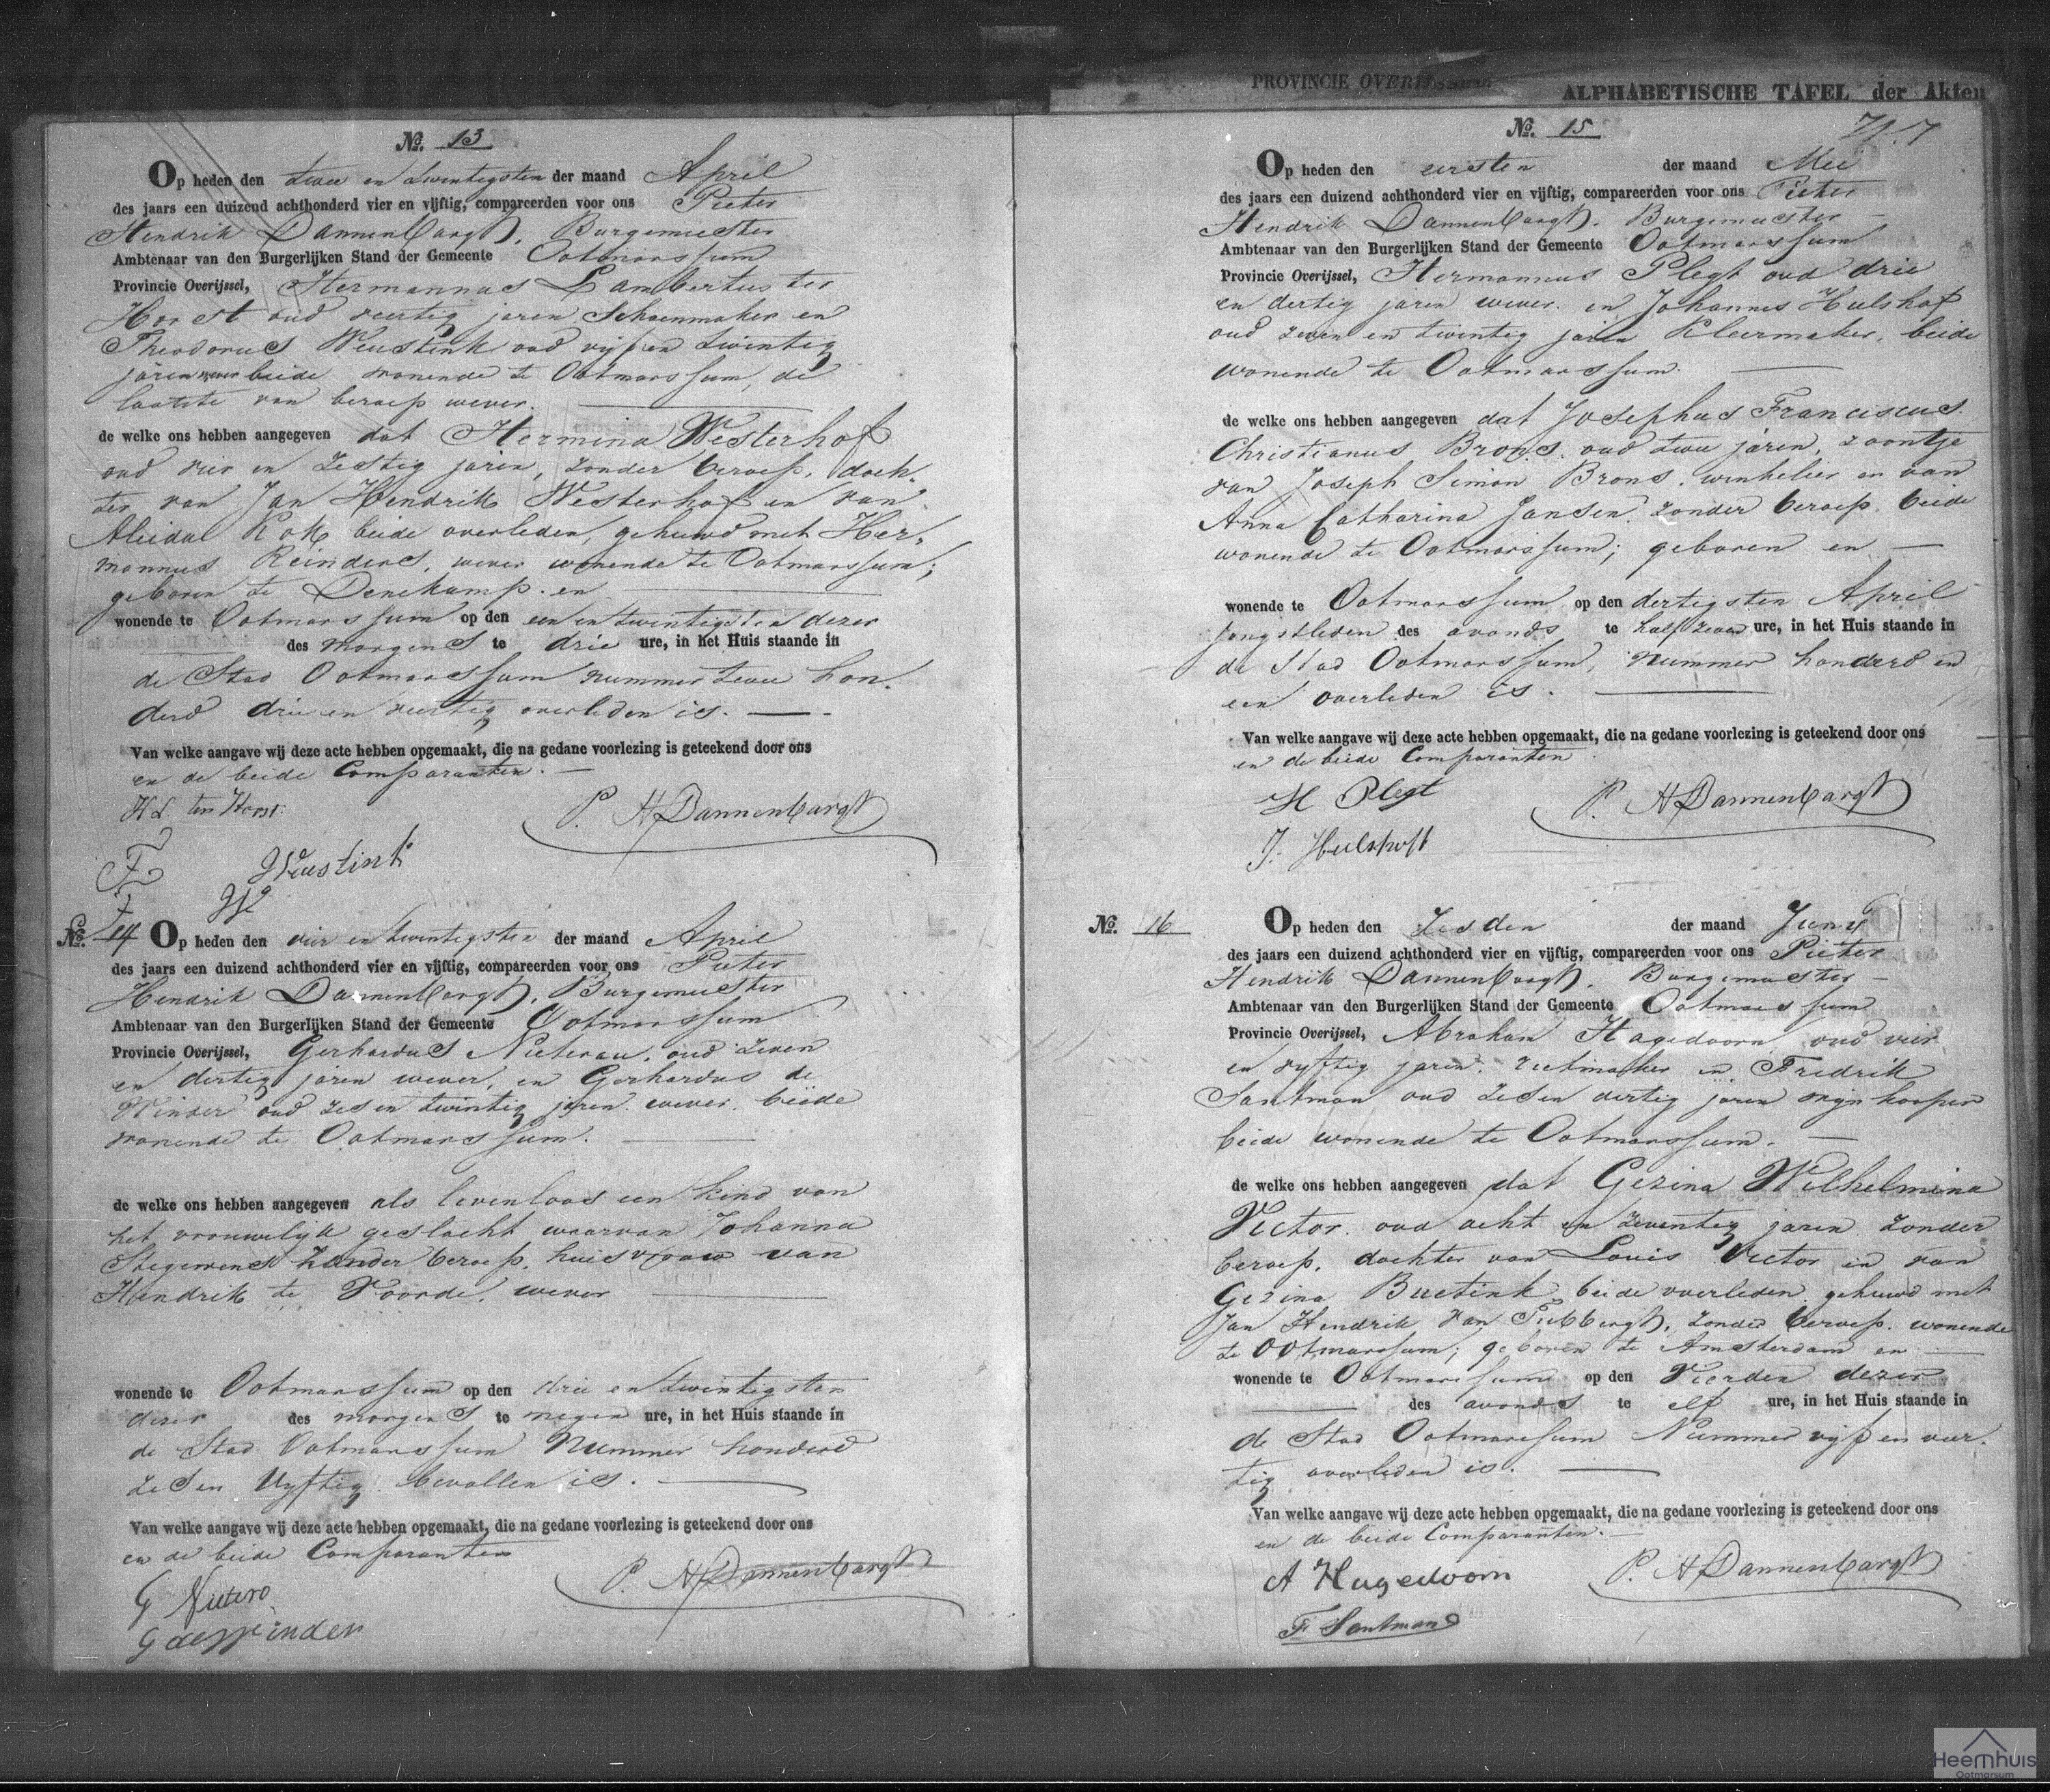 PROVINCIE OVERIJSSEL.
ALPHABETISCHE TAFEL der Akten
No. 13
Op heden den twee en twintigsten der maand April
des jaars een duizend achthonderd vier en vijftig, compareerden voor ons Pieter
Hendrik Dannenbargh, Burgemeester
Ambtenaar van den Burgerlijken Stand der Gemeente Ootmarssum
Provincie Overijssel, Hermannus Lambertus ter
Horst oud veertig jaren Schoenmaker en
Theodorus Weustink oud vijf en twintig
jaren beide wonende te Ootmarssum, de
laatste van beroep wever.
de welke ons hebben aangegeven dat Hermina Westerhof
oud vier en zestig jaren, zonder beroep, doch-
ter van Jan Hendrik Westerhof en van
Aleida Kok beide overleden, gehuwd met Her-
mannus Reinders, wever wonende te Ootmarssum;
geboren te Denekamp en
wonende te Ootmarssum op den een en twintigsten dezer
des morgens te drie ure, in het Huis staande in
de Stad Ootmarssum nummer twee hon-
derd drie en veertig overleden is.
Van welke aangave wij deze acte hebben opgemaakt, die na gedane voorlezing is geteekend door ons
en de beide Comparanten.
H L ter Horst
P. H Dannenbargh
Weustink
No. 14
Op heden den vier en twintigsten der maand April
des jaars een duizend achthonderd vier en vijftig, compareerden voor ons Pieter
Hendrik Dannenbargh, Burgemeester
Ambtenaar van den Burgerlijken Stand der Gemeente Ootmarssum
Provincie Overijssel, Gerhardus Nieterau, oud zeven
en dertig jaren wever, en Gerhardus de
Winder oud zes en twintig jaren wever beide
wonende te Ootmarssum.
de welke ons hebben aangegeven als levenloos een kind van
het vrouwelijk geslacht waarvan Johanna
Stegerens zonder beroep, huisvrouw van
Hendrik te Voorde, wever
wonende te Ootmarssum op den drie en twintigsten
dezer des morgens te negen ure, in het Huis staande in
de Stad Ootmarssum Nummer honderd
zes en Vyftig bevallen is.
Van welke aangave wij deze acte hebben opgemaakt, die na gedane voorlezing is geteekend door ons
en de beide Comparanten
P. H Dannenbargh
G Nietero
G de Winder
No. 15
Op heden den eersten der maand Mei
des jaars een duizend achthonderd vier en vijftig, compareerden voor ons Pieter
Hendrik Dannenbargh, Burgemeester
Ambtenaar van den Burgerlijken Stand der Gemeente Ootmarssum
Provincie Overijssel, Hermannus Plegt oud drie
en dertig jaren wever en Johannes Hulshof
oud zeven en twintig jaren Kleermaker, beide
wonende te Ootmarssum.
de welke ons hebben aangegeven dat Josephus Franciscus
Christianus Brons, oud twee jaren, zoontje
van Joseph Simon Brons, winkelier en van
Anna Catharina Jansen, zonder beroep, beide
wonende te Ootmarssum; geboren en
wonende te Ootmarssum op den dertigsten April
jongstleden des avonds te half zeven ure, in het Huis staande in
de Stad Ootmarssum, nummer honderd en
een overleden is.
Van welke aangave wij deze acte hebben opgemaakt, die na gedane voorlezing is geteekend door ons
en de beide Comparanten
H Plegt
P. H Dannenbargh
J. Hulshoff
No. 16
Op heden den Zesden der maand Juny
des jaars een duizend achthonderd vier en vijftig, compareerden voor ons Pieter
Hendrik Dannenbargh, Burgemeester
Ambtenaar van den Burgerlijken Stand der Gemeente Ootmarssum
Provincie Overijssel, Abraham Hagedoorn oud vier
en vyftig jaren, rietmaker en Fredrik
Santman oud zes en dertig jaren wijnkooper
beide wonende te Ootmarssum.
de welke ons hebben aangegeven dat Gezina Wilhelmina
Victor oud acht en zeventig jaren zonder
beroep, dochter van Louis Victor en van
Gezina Buetink beide overleden gehuwd met
Jan Hendrik van Tubbergh, zonder beroep, wonende
te Ootmarssum; geboren te Amsterdam en
wonende te Ootmarssum op den Vierden dezer
des avonds te elf ure, in het Huis staande in
de Stad Ootmarssum Nummer vijf en veer-
tig overleden is.
Van welke aangave wij deze acte hebben opgemaakt, die na gedane voorlezing is geteekend door ons
en de beide Comparanten.
A Hagedoorn
P. H Dannenbargh
F Santman
Heemhuis
Ootmarsum